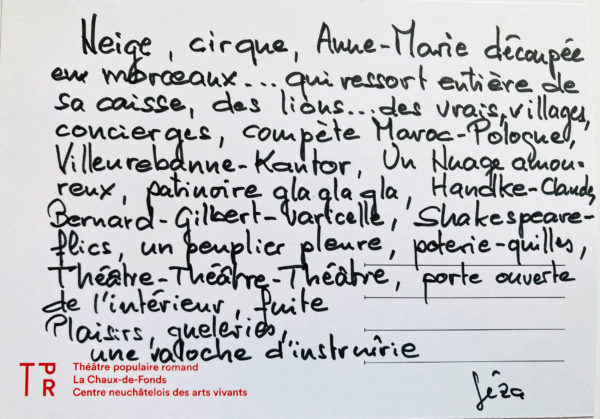 Neige, cirque, Anne-Marie découpée
en morceaux... qui ressort entière de
sa caisse, des lions... des vrais, villages,
concierges, compète Maroc-Pologne,
Villeurebanne-Kantor, Un Nuage amou-
reux, patinoire gla gla gla, Handke-Claude,
Bernard-Gilbert-Vartcelle, Shakespeare-
flics, un peuplier pleure, poterie-quilles,
Théâtre-Théâtre-Théâtre, porte ouverte
de l'intérieur, fuite
Plaisirs, queleries,
une valoche d'instruirie
Géza
TPR
Théâtre populaire romand
La Chaux-de-Fonds
Centre neuchâtelois des arts vivants